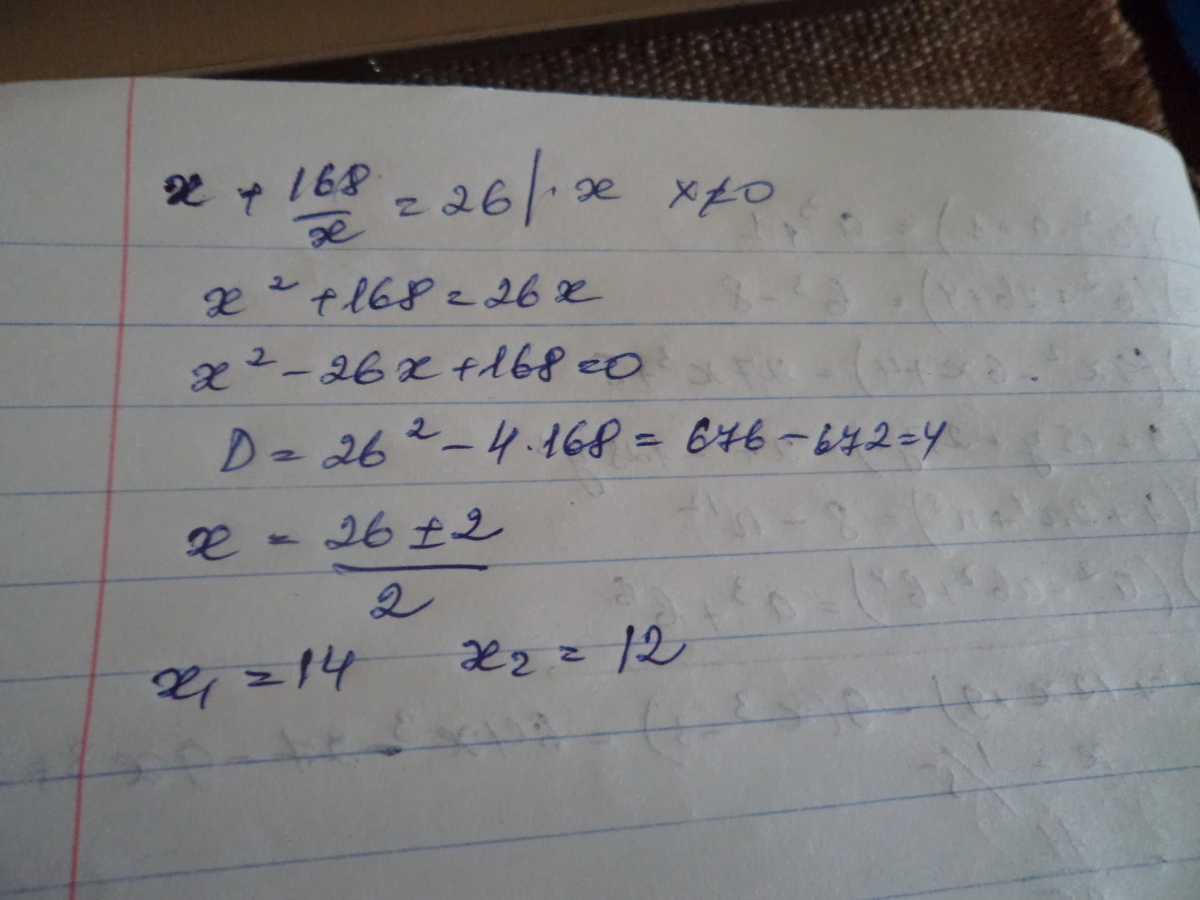 x + 168/x = 26 | · x x ≠ 0
x² + 168 = 26x
x² - 26x + 168 = 0
D = 26² - 4 · 168 = 676 - 672 = 4
x = (26 ± 2)/2
x₁ = 14 x₂ = 12